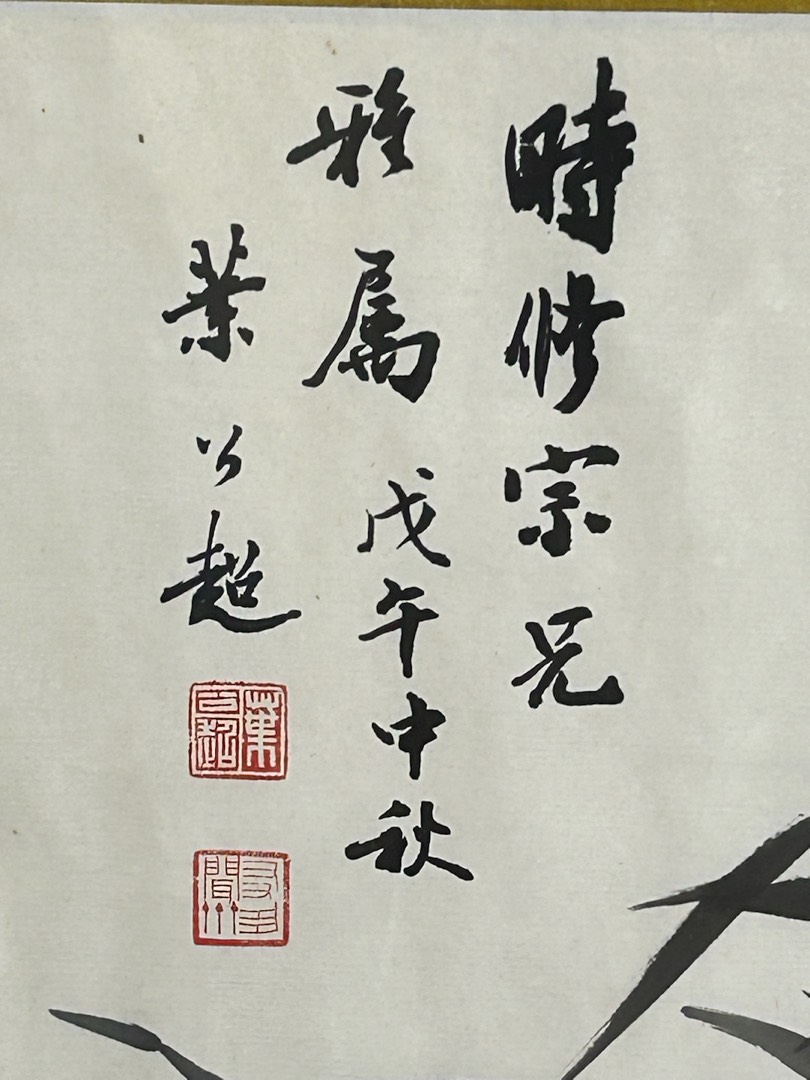 時修宗兄
雅属 戊午中秋
葉公超
葉公超